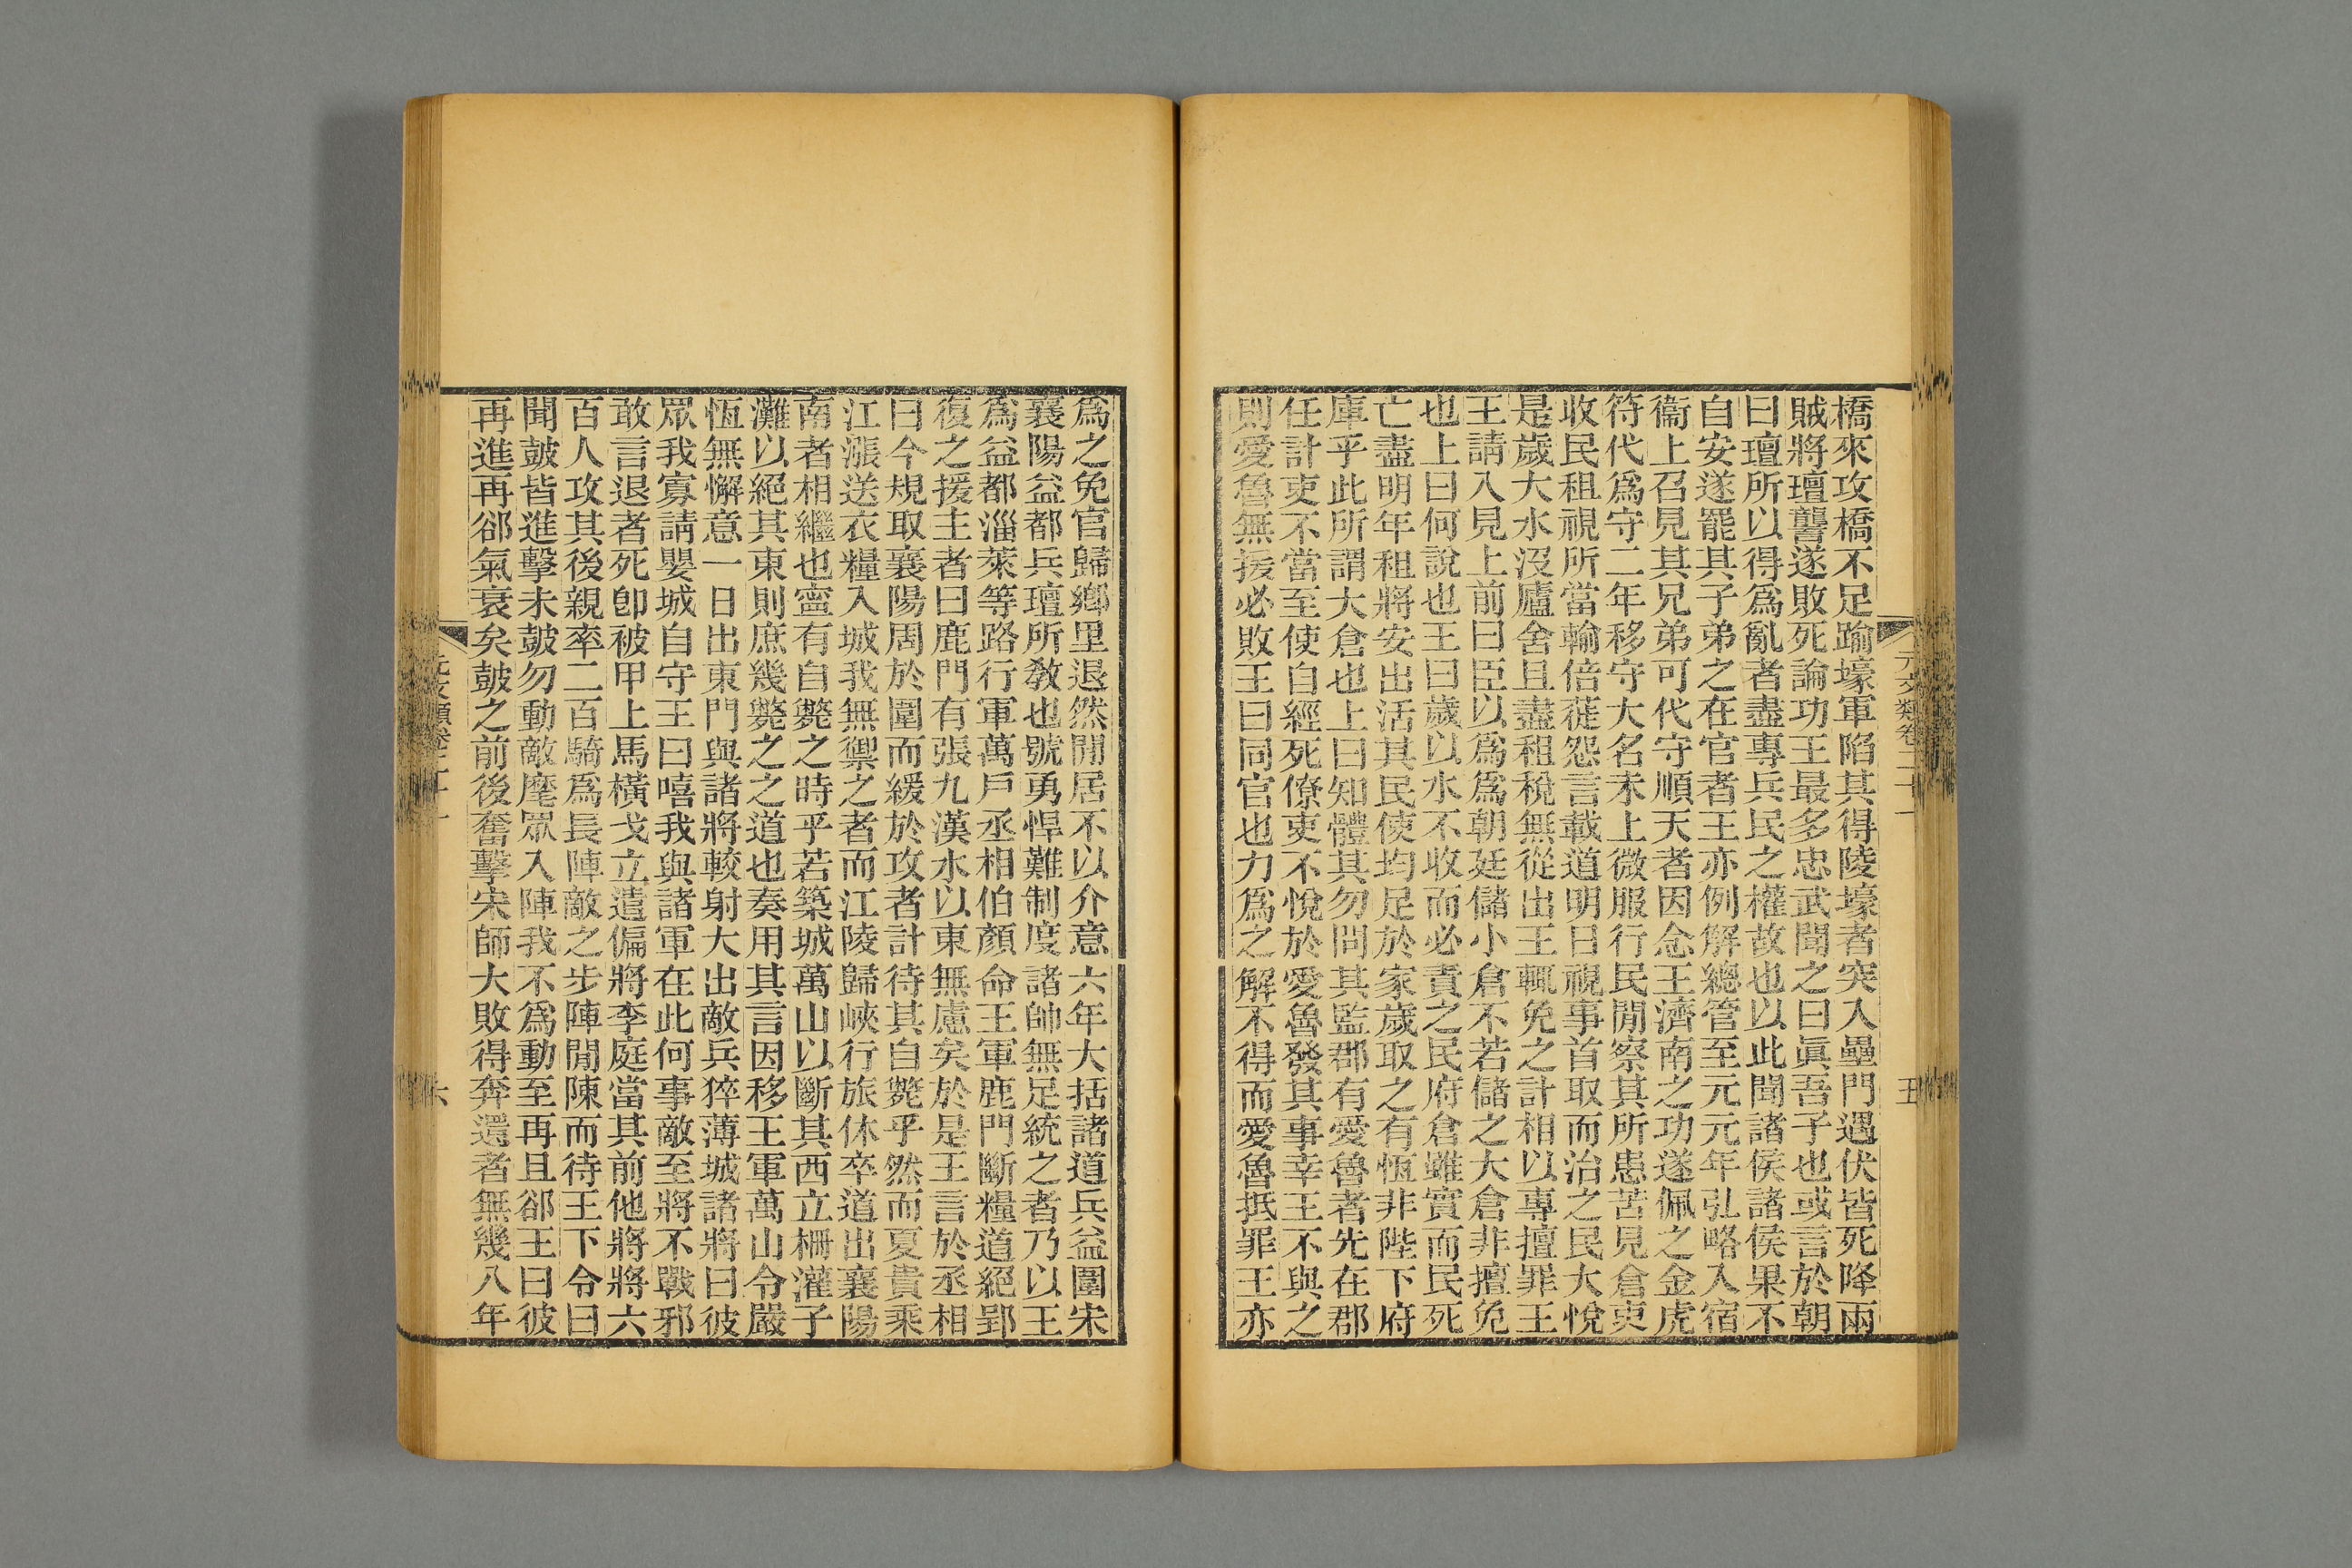 橋來攻橋不足踰壕軍陷其得陵壕者突入壘門遇伏皆死降兩
賊將璮讋遂敗死論功王最多忠武聞之曰眞吾子也或言於朝
曰璮所以得爲亂者盡專兵民之權故也以此聞諸侯諸侯果不
自安遂罷其子弟之在官者王亦例解總管至元元年弘略入宿
衞上召見其兄弟可代守順天者因念王濟南之功遂佩之金虎
符代爲守二年移守大名未上微服行民閒察其所患苦見倉吏
收民租視所當輸倍蓰怨言載道明日視事首取而治之民大悅
是歲大水沒廬舍且盡租稅無從出王輒免之計相以專擅罪王
王請入見上前曰臣以爲朝廷儲小倉不若儲之大倉非擅免
也上曰何說也王曰歲以水不收而必責之民府倉雖實而民死
亡盡明年租將安出活其民使均足於家歲取之有恆非陛下府
庫乎此所謂大倉也上曰知體其勿問其監郡有愛魯者先在郡
任計吏不當至使自經死僚吏不悅於愛魯發其事幸王不與之
則愛魯無援必敗王曰同官也力爲之解不得而愛魯抵罪王亦
元文類卷二十一
五
爲之免官歸鄉里退然閒居不以介意六年大括諸道兵益圍宋
襄陽益都兵璮所敎也號勇悍難制度諸帥無足統之者乃以王
爲益都淄萊等路行軍萬戶丞相伯顏命王軍鹿門斷糧道絕郢
復之援主者曰鹿門有張九漢水以東無慮矣於是王言於丞相
曰今規取襄陽周於圍而緩於攻者計待其自斃乎然而夏貴乘
江漲送衣糧入城我無禦之者而江陵歸峽行旅休卒道出襄陽
南者相繼也寧有自斃之時乎若築城萬山以斷其西立柵灌子
灘以絕其東則庶幾斃之之道也奏用其言因移王軍萬山令嚴
恆無懈意一日出東門與諸將較射大出敵兵猝薄城諸將曰彼
眾我寡請嬰城自守王曰嘻我與諸軍在此何事敵至將不戰邪
敢言退者死卽被甲上馬橫戈立遣偏將李庭當其前他將將六
百人攻其後親率二百騎爲長陣敵之步陣閒陳而待王下令曰
聞皷皆進擊未皷勿動敵麾眾入陣我不爲動至再且郤王曰彼
再進再郤氣衰矣皷之前後奮擊宋師大敗得奔還者無幾八年
六